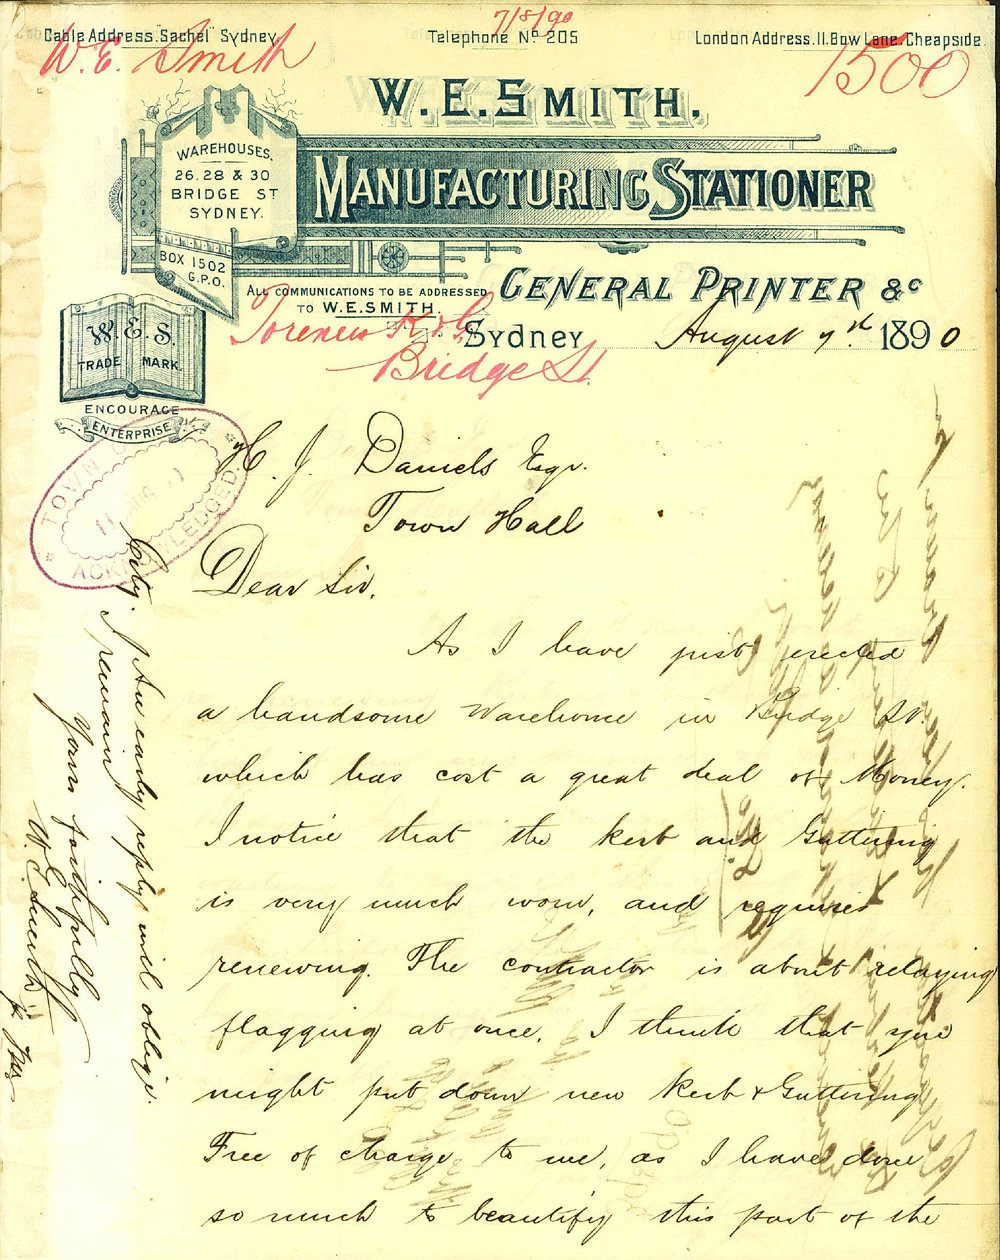 7/8/90
Cable Address. "Sachel" Sydney.
Telephone No 205
London Address. 11. Bow Lane. Cheapside.
W. E. Smith
1500
W. E. SMITH.
MANUFACTURING STATIONER
WAREHOUSES.
26. 28 & 30
BRIDGE ST
SYDNEY.
BOX 1502
G.P.O.
ALL COMMUNICATIONS TO BE ADDRESSED
TO W. E. SMITH
GENERAL PRINTER &c
K & G
Bridge St.
Sydney August 7th 1890
W. E. S.
TRADE MARK.
ENCOURAGE
ENTERPRISE
TOWN
11 AUG
ACKNOWLEDGED.
H. J. Daniels Esqr.
Town Hall
Dear Sir,
As I have just erected
a handsome Warehouse in Bridge St.
which has cost a great deal of Money.
I notice that the kerb and Guttering
is very much worn, and requires
renewing. The contractor is about relaying
flagging at once. I think that you
might put down new Kerb & Guttering
Free of charge to me, as I have done
so much to beautify this part of the
City. An early reply will oblige.
I remain
Yours faithfully
W. E. Smith